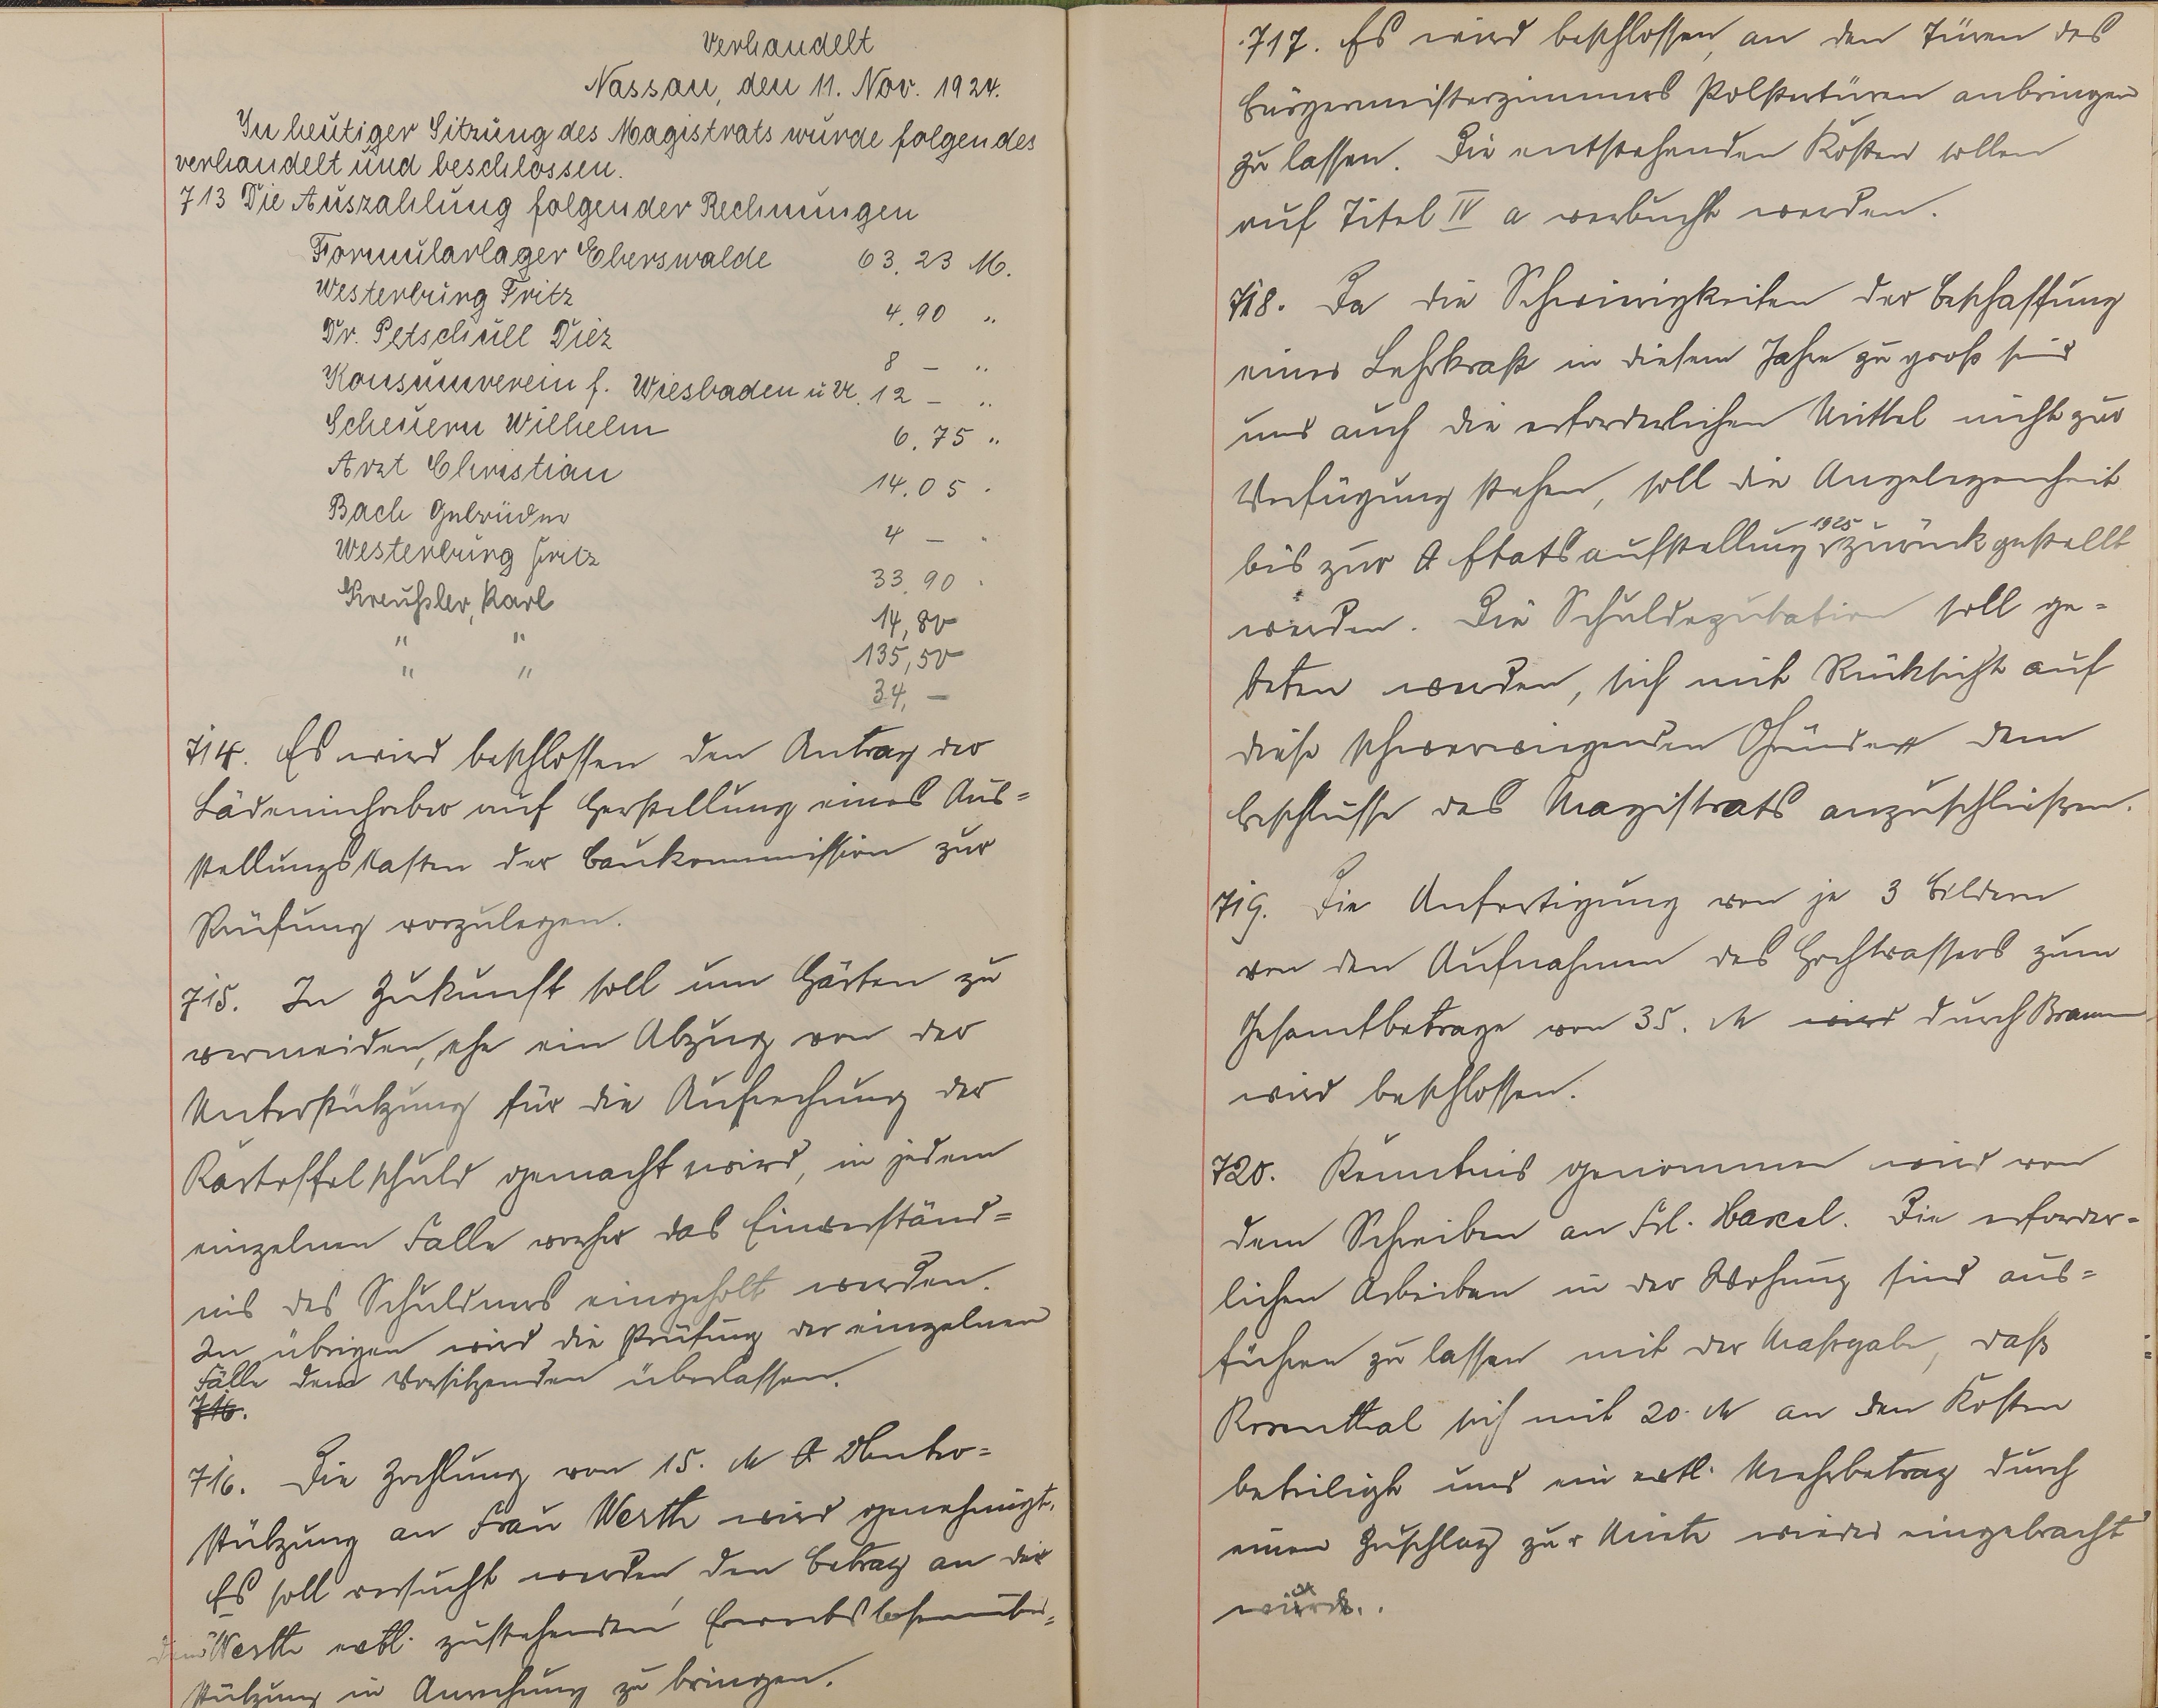 Verhandelt
Nassau, den 11. Nov. 1924.
In heutiger Sitzung des Magistrats wurde folgendes
verhandelt und beschlossen.
713 Die Auszahlung folgender Rechnungen
Formularlager Eberswalde 63.23 M.
Westerburg Fritz 4.90 "
Dr. Petschull Diez 8 – "
Konsumverein f. Wiesbaden u. 12 – "
Scheuern Wilhelm 6.75 "
Arzt Christian 14.05 "
Bach Gebrüder 4 – "
Westerburg Fritz 33.90 "
Kreußler, Karl 14,80
" " 135,50
" " 34,–
714. Es wird beschlossen den Antrag der
Ladeninhaber auf Herstellung eines Aus=
stellungskasten der Baukommission zur
Prüfung vorzulegen.
715. In Zukunft soll um Härten zu
vermeiden, ehe ein Abzug von der
Unterstützung für die Aufrechnung der
Kartoffelschuld gemacht wird, in jedem
einzelnen Falle vorher das Einverständ=
nis des Schuldners eingeholt werden.
Im übrigen wird die Prüfung der einzelnen
Fälle dem Vorsitzenden überlassen.
716.
716. Die Zahlung von 15. M Unter=
stützung an Frau Werth wird genehmigt.
Es soll versucht werden den Betrag an der
dem Werth evtl. zustehenden Erwerbslosenunter=
stützung in Anrechnung zu bringen.
717. Es wird beschlossen, an den Türen des
Bürgermeisterzimmers Polstertüren anbringen
zu lassen. Die entstehenden Kosten sollen
auf Titel IV a verbucht werden.
718. Da die Schwierigkeiten der Beschaffung
einer Lehrkraft in diesem Jahre zu groß sind
und auch die erforderlichen Mittel nicht zur
Verfügung stehen, soll die Angelegenheit
bis zur Etatsaufstellung 1925 zurückgestellt
werden. Die Schuldeputation soll ge=
beten werden, sich mit Rücksicht auf
diese schwerwiegenden Gründe dem
Beschlusse des Magistrats anzuschließen.
719. Die Anfertigung von je 3 Bildern
von den Aufnahmen des Hochwassers zum
Gesamtbetrage von 35. M wird durch Bramm
wird beschlossen.
720. Kenntnis genommen wird von
dem Schreiben an Frl. Haxel. Die erforder=
lichen Arbeiten in der Wohnung sind aus=
führen zu lassen mit der Maßgabe, daß
Rosenthal sich mit 20. M an den Kosten
beteiligt und ein evtl. Mehrbetrag durch
einen Zuschlag zur Miete wieder eingebracht
wird.